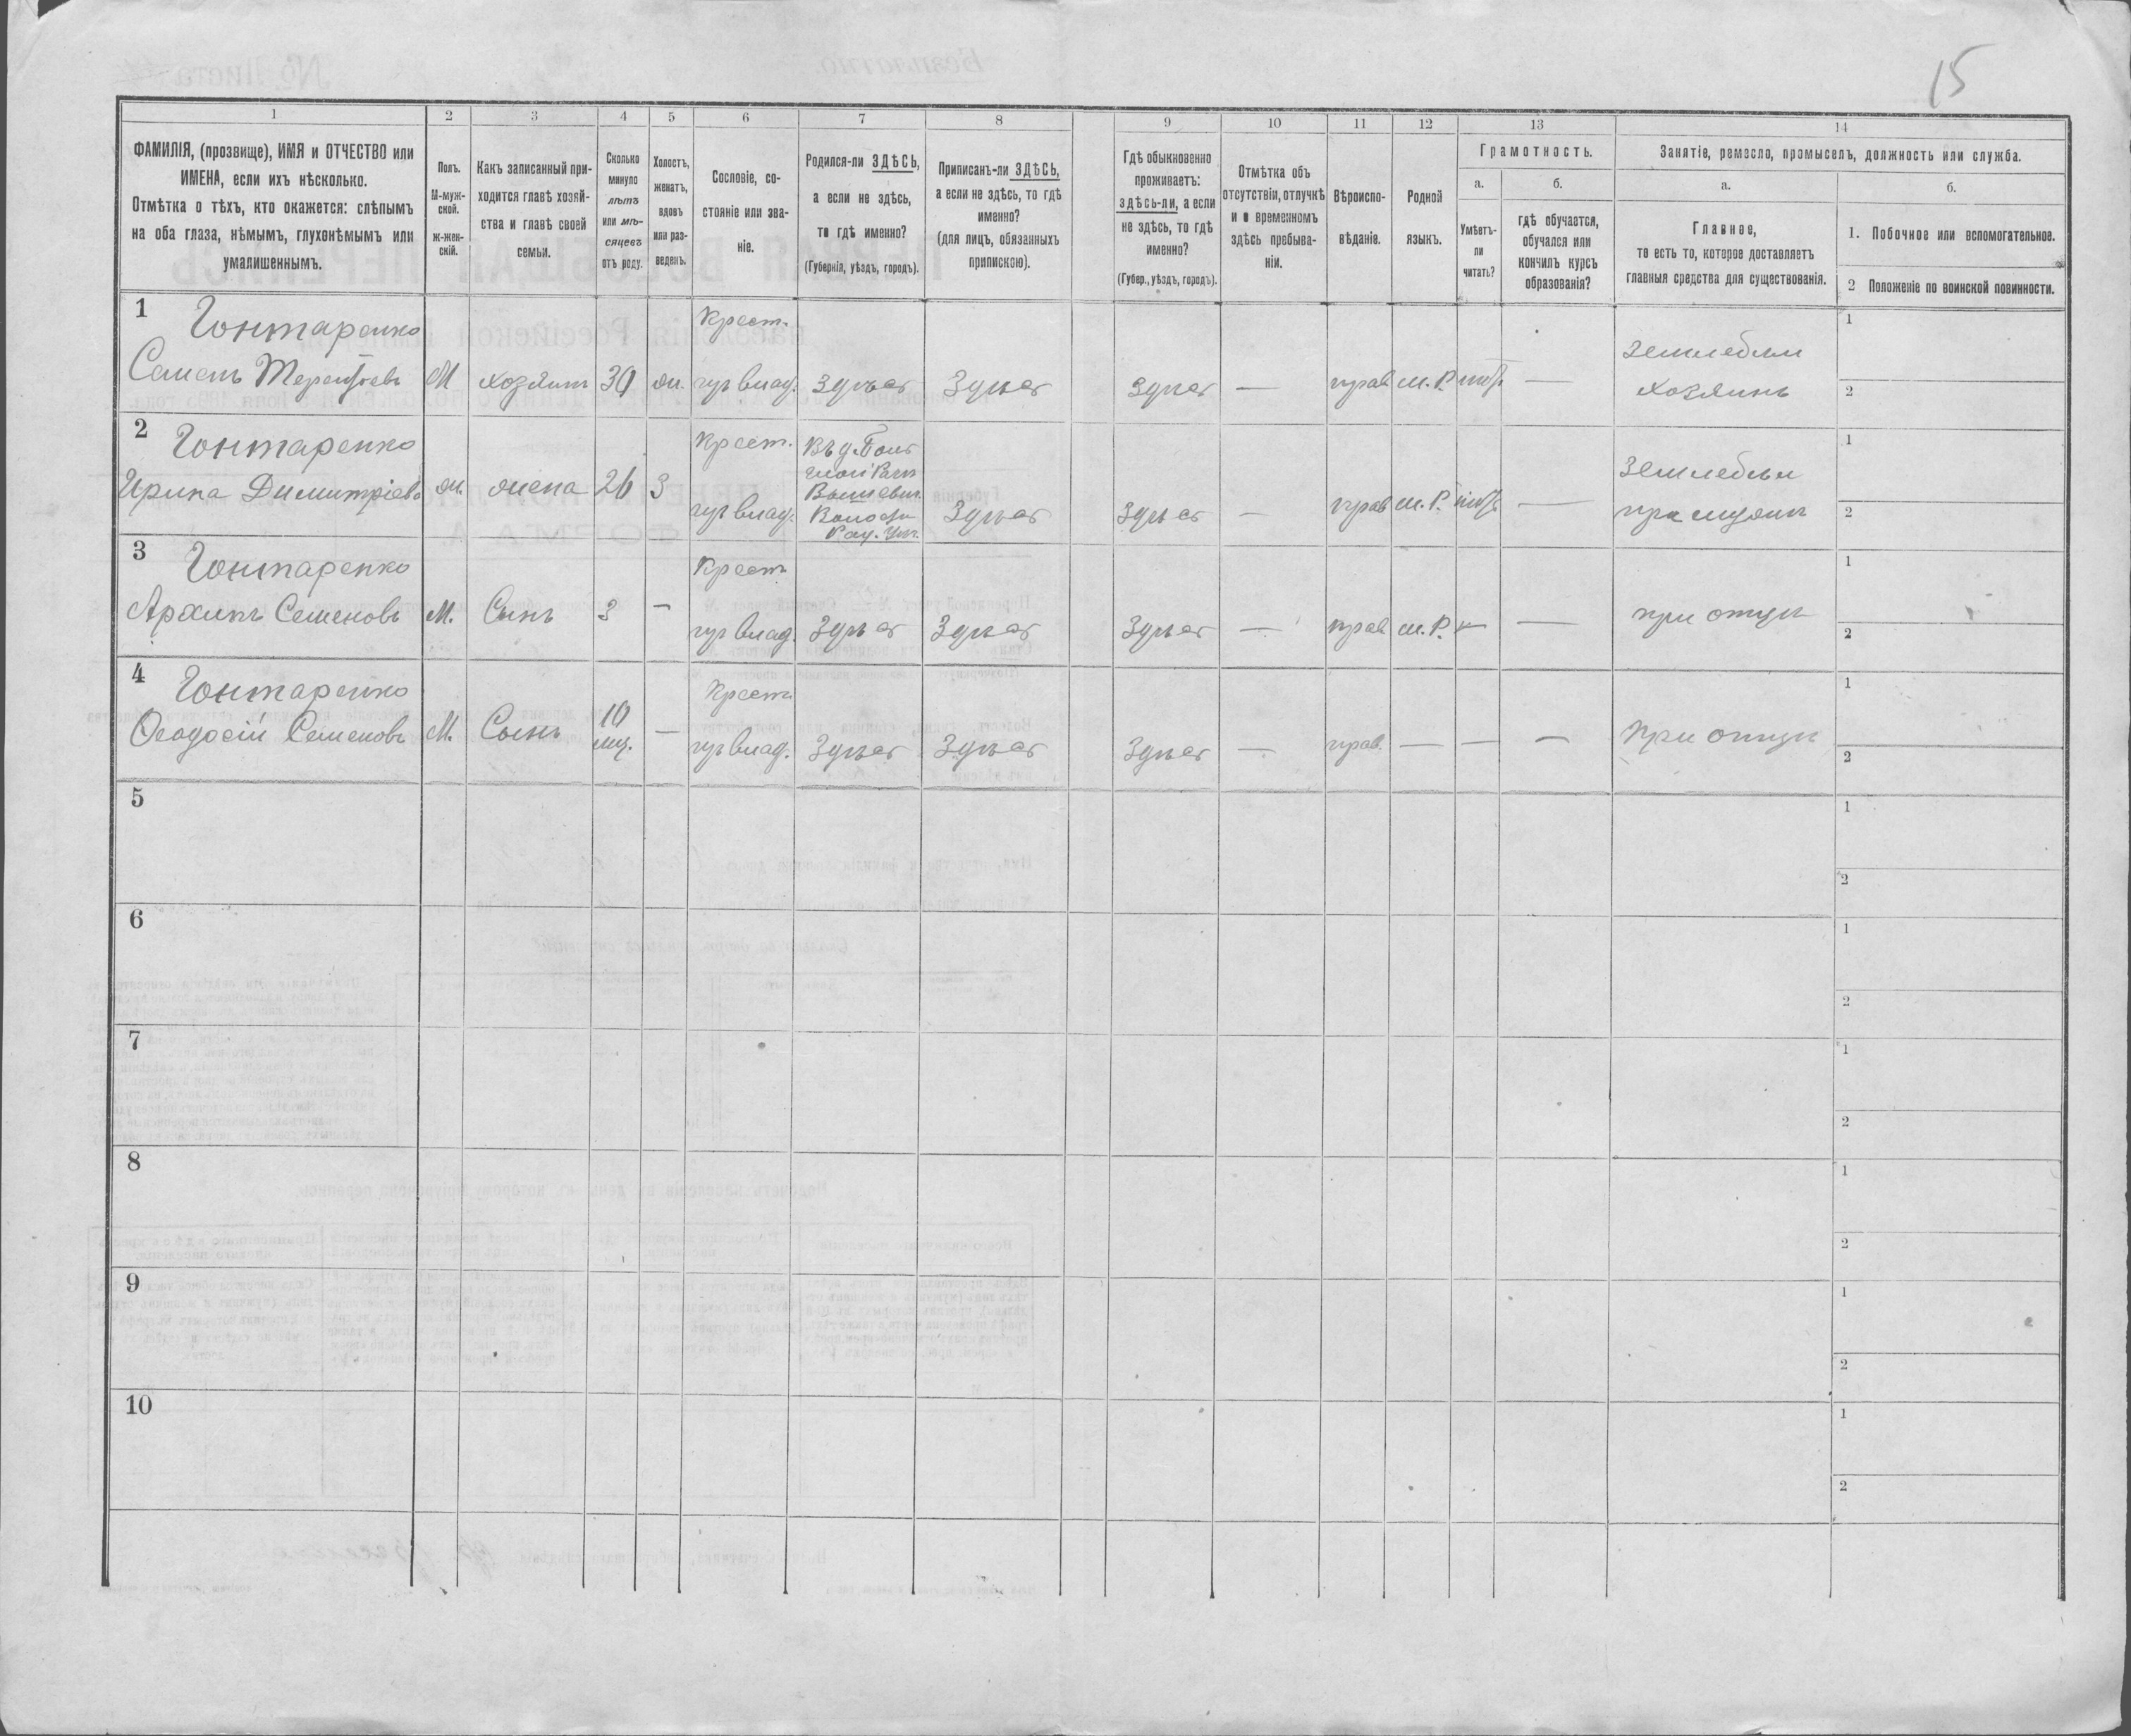 15
1
2
3
4
5
6
7
8
9
10
11
12
13
14
ФАМИЛІЯ, (прозвище), ИМЯ и ОТЧЕСТВО или
ИМЕНА, если ихъ нѣсколько.
Отмѣтка о тѣхъ, кто окажется: слѣпымъ
на оба глаза, нѣмымъ, глухонѣмымъ или
умалишеннымъ.
Полъ.
М-муж-
ской.
ж-жен-
скій.
Какъ записанный при-
ходится главѣ хозяй-
ства и главѣ своей
семьи.
Сколько
минуло
лѣтъ
или мѣ-
сяцевъ
отъ роду.
Холостъ,
женатъ,
вдовъ
или раз-
веденъ.
Сословіе, со-
стояніе или зва-
ніе.
Родился-ли ЗДѢСЬ,
а если не здѣсь,
то гдѣ именно?
(Губернія, уѣздъ, городъ).
Приписанъ-ли ЗДѢСЬ,
а если не здѣсь, то гдѣ
именно?
(для лицъ, обязанныхъ
припискою).
Гдѣ обыкновенно
проживаетъ:
здѣсь-ли, а если
не здѣсь, то гдѣ
именно?
(Губер., уѣздъ, городъ).
Отмѣтка объ
отсутствіи, отлучкѣ
и о временномъ
здѣсь пребыва-
ніи.
Вѣроиспо-
вѣданіе.
Родной
языкъ.
Грамотность.
а.
Умѣетъ-
ли
читать?
б.
гдѣ обучается,
обучался или
кончилъ курсъ
образованія?
Занятіе, ремесло, промыселъ, должность или служба.
а.
Главное,
то есть то, которое доставляетъ
главныя средства для существованія.
б.
1. Побочное или вспомогательное.
2 Положеніе по воинской повинности.
1 Гонтаренко Крест. 1
Семенъ Терентьевъ М хозяинъ 30 ж. гг. влад. Здѣсь Здѣсь Здѣсь — прав м. Р. — хозяинъ 2
2 Гонтаренко Крест. Въ д. 1
Ирина Димитріева ж. жена 26 З влад. Здѣсь Здѣсь — прав м. Р. — при мужѣ 2
3 Гонтаренко Крест 1
Архипъ Семеновъ М. Сынъ 3 — влад. Здѣсь Здѣсь Здѣсь — прав м. Р. — — при отцѣ 2
4 Гонтаренко Крест 1
Ѳеодосій Семеновъ М. Сынъ 10 мц. — влад. Здѣсь Здѣсь Здѣсь — прав. — — — При отцѣ 2
5 1
2
6 1
2
7 1
2
8 1
2
9 1
2
10 1
2